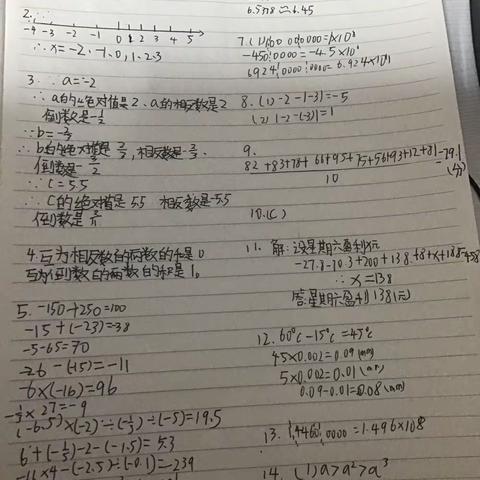 2.
-4 -3 -2 -1 0 1 2 3 4 5
∴x=-2,-1,0,1,2.3
3. ∵a=-2
∴a的绝对值是2.a的相反数是2
倒数是-½
∵b=-
∴b的绝对值是 相反数是
倒数是
∵C=5.5
∴C的绝对值是5.5 相反数是-5.5
倒数是
4.互为相反数的两数的和是0
互为倒数的两数的积是1。
5. -150+250=100
-15+(-23)=38
-5-65=70
-26-(-15)=-11
-6×(-16)=96
-⅓×27=-9
(-6.5)×(-2)÷(-⅓)÷(-5)=19.5
6+(-⅕)-2-(-1.5)=5.3
-11×4-(-2.5)÷(-0.1)=-239
6.5378≈6.45
7.
-4500000=-4.5×10
6924000000=6.924×10
8. (1)-2-1-3)=-5
(2) 1-2-(-3)=1
9.
82+83+78+66+95+75+56+93+12+81=79.1
10
(分)
10.(C)
11. 解:设星期六盈利x元
-27.8-70.3+200+138.1+8+x+188=458
∴x=138
答:星期六盈利138(元)
12. 60℃-15℃=45℃
45×0.002=0.09(mm)
5×0.002=0.01(mm)
0.09-0.01=0.08(mm)
13. =1.496×10⁸
14. (1)a>a²>a³